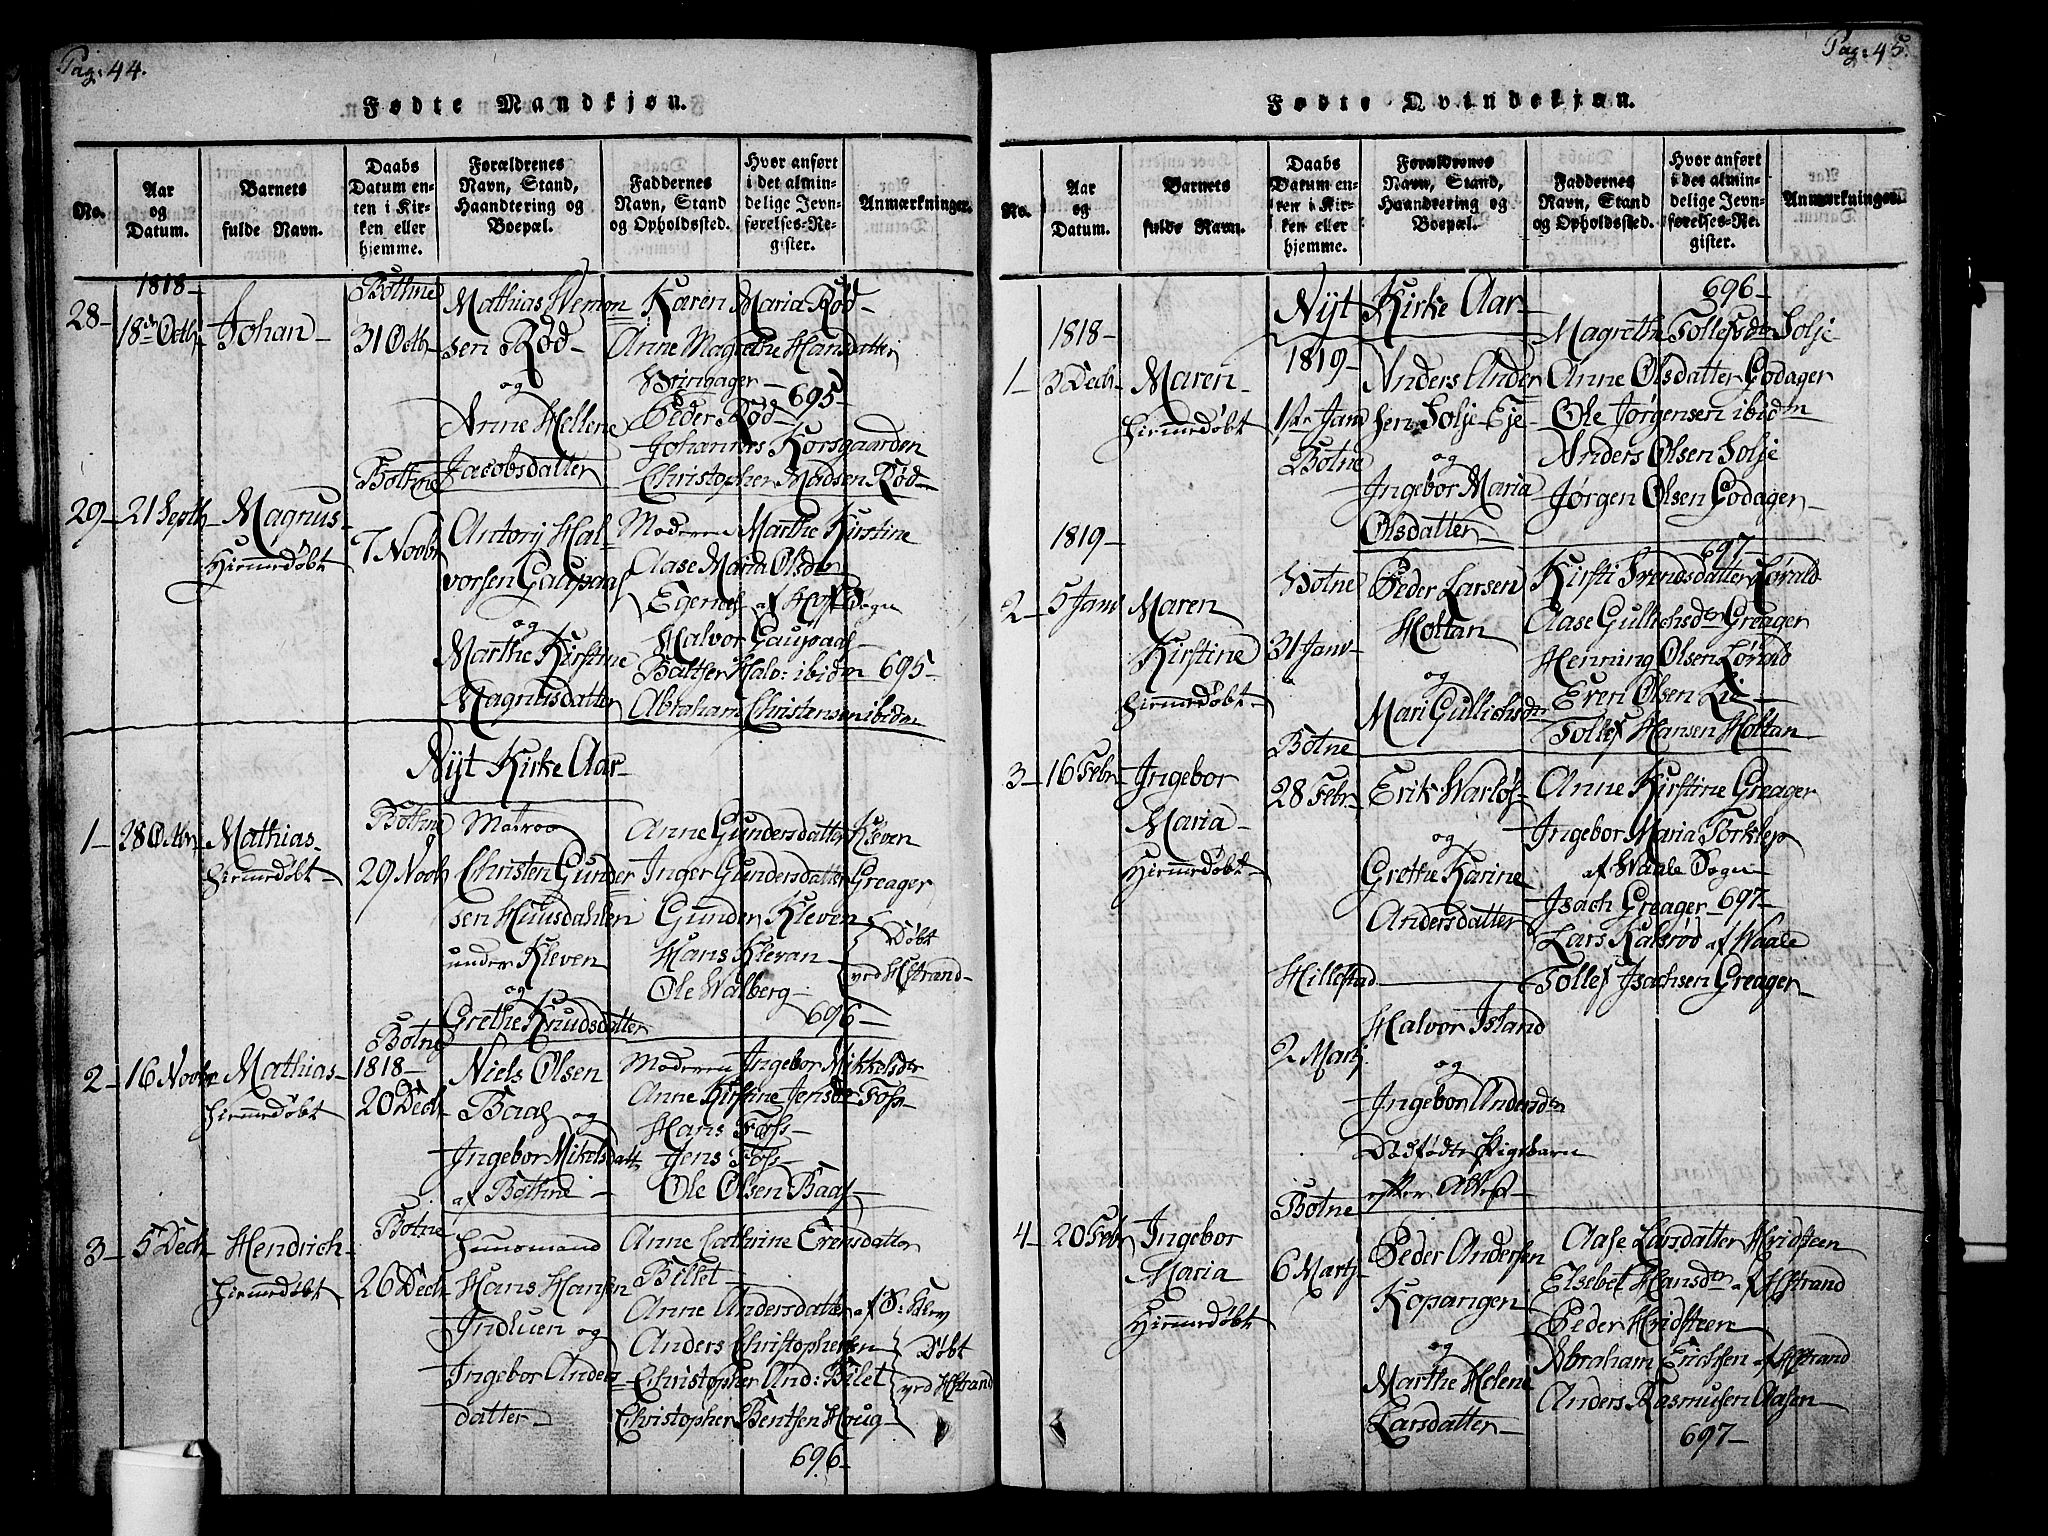 Pag: 44.
Fødte Mandkjøn.
No.
Aar og Datum.
Barnets fulde Navn.
Daabs Datum enten i Kirken eller hjemme.
Forældrenes Navn, Stand, Haandtering og Boepæl.
Faddernes Navn, Stand og Opholdssted.
Hvor anført i det almindelige Jevnførelses-Register.
Anmærkninger.
28-
1818-
18de Octbr
Johan-
Bothne
31 Octbr
Mathias Wemon
sen Rød-
og
Anne Hellene
Jacobsdatter
Karen Maria Rød-
Anne Magrethe Hansdatter
695-
Peder Rød-
Johannes Korsgaarden
Christopher Madsen Rød-
29-
21 Septb
Magnus-
Hiemedøbt
Bothne
7 Novbr
Antony Hal-
vorsen Gaupaas
og
Marthe Kirstine
Magnusdatter
Moderen Marthe Kirstine
Aase Maria Olsdtr
Egernes af Hoff Sogn
Halvor Gaupaas-
Balther Halv: ibidm 695-
Abraham Christensen ibidm
Nyt Kirke Aar-
1-
28 Octbr
Mathias-
Hiemedøbt-
Bothne
29 Novbr
Matros
Christen Gunder
sen Huusdahlen
under Kleven
og
Grethe Knudsdatter
Anne Gundersdatter Kleven
Inger Gundersdatter Greager
Gunder Kleven
Hans Klevan
Ole Walberg-
696-
Døbt
ved Hstrand-
2-
16 Novbr
Mathias-
Hiemedøbt
Botne
1818-
20 Decb
Niels Olsen
Baas og
Ingebor Mikelsdatt
af Bothne-
Moderen Ingebor Mikkelsdtr
Anne Kirstine Jensdtr Foss-
Hans Foss-
Jens Foss-
Ole Olsen Baas-
3-
5 Decb
Hendrich-
Hiemedøbt
Botne
26 Decb
Huusmand
Hans Hansen
Indluen og
Ingebor Anders
datter-
Anne Cathrine Erensdatter
Billet-
Anne Andersdatter af S:
Anders Christophersen
Christopher And: Bilet
Christopher Bentsen Houg-
Døbt
ved Hstrand
696-
Pag: 45.
Fødte Qvindekjøn.
No.
Aar og Datum.
Barnets fulde Navn.
Daabs Datum enten i Kirken eller hjemme.
Forældrenes Navn, Stand, Haandtering og Boepæl.
Faddernes Navn, Stand og Opholdssted.
Hvor anført i det almindelige Jevnførelses-Register.
Anmærkninger.
Nyt Kirke Aar-
1-
1818-
3 Decb
Maren-
Hiemedøbt
1819-
1ste Janv
Botne
Anders Ander
sen Solje Eje-
og
Ingebor Maria
Olsdatter
696-
Magrethe Tollefsdtr Solje
Anne Olsdatter Godager
Ole Jørgensen ibidm
Anders Olsen Solje
Jørgen Olsen Godager-
2-
1819-
5 Janv
Maren
Kirstine
Hiemedøbt-
Botne
31 Janv-
Peder Larsen
Holtan
og
Mari Gullichsdtr
697-
Kirsti Svendsdatter Lørald
Aase Gullichsdtr Greager
Henning Olsen Lørald
Eren Olsen Lie-
Tollef Hansen Holtan
3-
16 Febr-
Ingebor
Maria-
Hiemedøbt
Botne
28 Febr-
Erik Warløs-
og
Grethe Karine
Andersdatter
Anne Kirstine Greager
Ingebor Maria Torklep
af Waale Sogn
Isach Greager 697-
Lars Kalsrød af Waale
Tollef Isachsen Greager-
Hillestad
2 Martj.
Halvor Island
og
Ingebor Andersdtr
Dødfødte Pigebarn
efter Attest-
4-
20 Febr
Ingebor
Maria
Hiemedøbt
Botne
6 Martj
Peder Andersen
Kopangen
og
Marthe Helene
Larsdatter-
Aase Larsdatter Hvidsteen
Elsebet Hansdtr af Hstrand
Peder Hvidsteen
Abraham Erichsen af Hstrand
Anders Rasmusen Aasen
697-